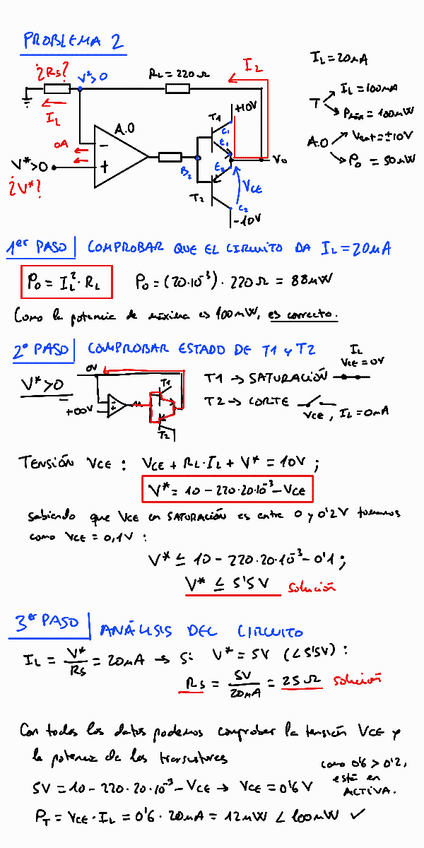 PROBLEMA 2
¿Rs?
V*>0
RL = 220 Ω
I2
IL = 20mA
IL
0A
A.O
T1
+10V
C1
E1
B2
E2
Vo
VCE
V*>0
¿V*?
T2
C2
-10V
T
IL = 100mA
Pmáx = 100mW
A.O
Vsat = ±10V
Po = 50mW
1er PASO | COMPROBAR QUE EL CIRCUITO DA IL = 20mA
Po = IL² · RL Po = (20·10⁻³) · 220 Ω = 88mW
Como la potencia de máxima es 100mW, es correcto.
2º PASO | COMPROBAR ESTADO DE T1 y T2
V*>0
0V
+00V
T1
T2
T1 → SATURACIÓN
IL
VCE = 0V
T2 → CORTE
VCE, IL = 0mA
TENSIÓN VCE : VCE + RL·IL + V* = 10V ;
V* = 10 - 220·20·10⁻³ - VCE
sabiendo que VCE en SATURACIÓN es entre 0 y 0'2V tomamos
como VCE = 0,1V :
V* ≤ 10 - 220·20·10⁻³ - 0'1 ;
V* ≤ 5'5V solución
3er PASO | ANÁLISIS DEL CIRCUITO
IL = V*/Rs = 20mA → Si V* = 5V (<5'5V) :
Rs = 5V/20mA = 25 Ω solución
Con todos los datos podemos comprobar la tensión VCE y
la potencia de los transistores
como 0'6 > 0'2,
está en
ACTIVA.
5V = 10 - 220·20·10⁻³ - VCE → VCE = 0'6V
PT = VCE · IL = 0'6 · 20mA = 12mW < 100mW ✓